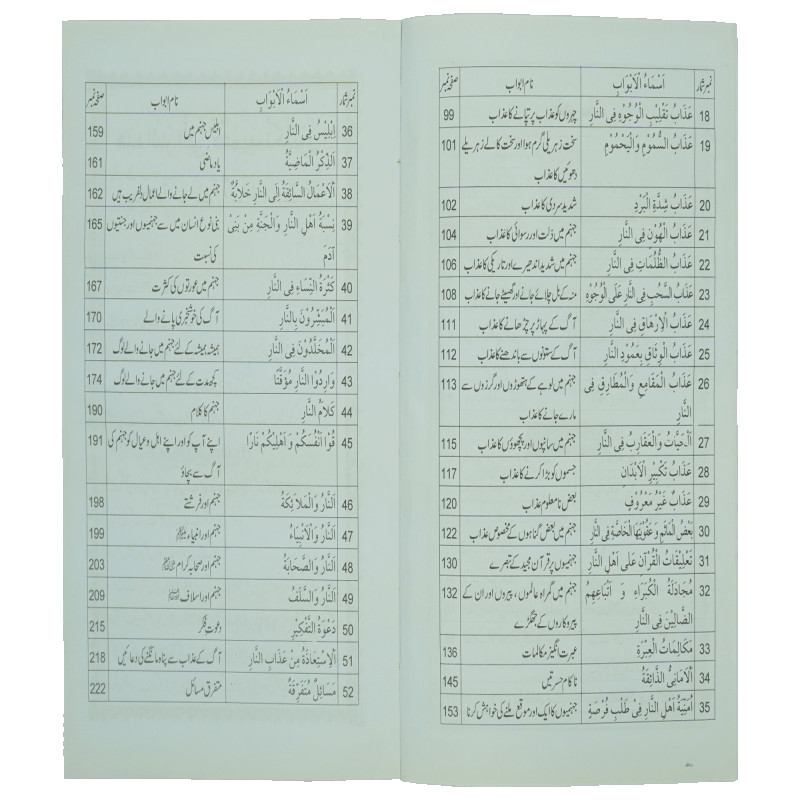 نمبر شمار اَسْمَاءُ الْاَبْوَابِ نام ابواب صفحہ نمبر
18 عَذَابُ تَقْلِيْبِ الْوُجُوْهِ فِی النَّارِ چہروں کو عذاب پر تپانے کا عذاب 99
19 عَذَابُ السَّمُوْمِ وَالْيَحْمُوْمِ سخت زہریلی گرم ہوا اور سخت کالے زہریلے 101
دھوئیں کا عذاب
20 عَذَابُ شِدَّةِ الْبَرْدِ شدید سردی کا عذاب 102
21 عَذَابُ الْهُوْنِ فِی النَّارِ جہنم میں ذلت اور رسوائی کا عذاب 104
22 عَذَابُ الظُّلُمَاتِ فِی النَّارِ جہنم میں شدید اندھیرے اور تاریکی کا عذاب 106
23 عَذَابُ السَّحْبِ فِی النَّارِ عَلَی الْوُجُوْهِ منہ کے بل چلائے جانے اور گھسیٹے جانے کا عذاب 108
24 عَذَابُ الْاِرْهَاقِ فِی النَّارِ آگ کے پہاڑ پر چڑھانے کا عذاب 111
25 عَذَابُ الْوِثَاقِ بِعَمُوْدِ النَّارِ آگ کے ستونوں سے باندھنے کا عذاب 112
26 عَذَابُ الْمَقَامِعِ وَالْمَطَارِقِ فِی جہنم میں لوہے کے ہتھوڑوں اور گرزوں سے 113
النَّارِ مارے جانے کا عذاب
27 اَلْحَيَّاتُ وَالْعَقَارِبُ فِی النَّارِ جہنم میں سانپوں اور بچھوؤں کا عذاب 115
28 عَذَابُ تَكْبِيْرِ الْاَبْدَانِ جسموں کو بڑا کرنے کا عذاب 117
29 عَذَابٌ غَيْرُ مَعْرُوْفٍ بعض نامعلوم عذاب 120
30 بَعْضُ الْمَآثِمِ وَ عُقُوْبَتُهَا الْخَاصَّةُ فِی النَّارِ جہنم میں بعض گناہوں کے مخصوص عذاب 122
31 تَعْلِيْقَاتُ الْقُرْآنِ عَلٰی اَهْلِ النَّارِ جہنمیوں پر قرآن مجید کے تبصرے 130
32 مُجَادَلَةُ الْكُبَرَاءِ وَ اَتْبَاعِهِمُ جہنم میں گمراہ عالموں ، پیروں اور ان کے 132
الضَّالِّيْنَ فِی النَّارِ پیروکاروں کے جھگڑے
33 مَكَالِمَاتُ الْعِبْرَةِ عبرت انگیز مکالمات 136
34 اَلْاَمَانِیُّ الذَّائِقَةُ ناکام حسرتیں 145
35 اُمْنِيَّةُ اَهْلِ النَّارِ فِیْ طَلَبِ فُرْصَةٍ جہنمیوں کا ایک اور موقع ملنے کی خواہش کرنا 153
نمبر شمار اَسْمَاءُ الْاَبْوَابِ نام ابواب صفحہ نمبر
36 اِبْلِيْسُ فِی النَّارِ ابلیس جہنم میں 159
37 اَلذِّكْرُ الْمَاضِيَةُ یاد ماضی 161
38 اَلْاَعْمَالُ السَّائِقَةُ اِلَی النَّارِ خَلَّابَةٌ جہنم میں لے جانے والے اعمال دلفریب ہیں 162
39 نِسْبَةُ اَهْلِ النَّارِ وَالْجَنَّةِ مِنْ بَنِیْ بنی نوع انسان میں سے جہنمیوں اور جنتیوں 165
آدَمَ کی نسبت
40 كَثْرَةُ النِّسَاءِ فِی النَّارِ جہنم میں عورتوں کی کثرت 167
41 اَلْمُبَشَّرُوْنَ بِالنَّارِ آگ کی خوشخبری پانے والے 170
42 اَلْمُخَلَّدُوْنَ فِی النَّارِ ہمیشہ ہمیشہ کے لئے جہنم میں جانے والے لوگ 172
43 وَارِدُوا النَّارِ مُؤَقَّتًا کچھ مدت کے لئے جہنم میں جانے والے لوگ 174
44 كَلَامُ النَّارِ جہنم کا کلام 190
45 قُوْا اَنْفُسَكُمْ وَ اَهْلِيْكُمْ نَارًا اپنے آپ کو اور اپنے اہل و عیال کو جہنم کی 191
آگ سے بچاؤ
46 اَلنَّارُ وَالْمَلَائِكَةُ جہنم اور فرشتے 198
47 اَلنَّارُ وَالْاَنْبِيَاءُ جہنم اور انبیاء 199
48 اَلنَّارُ وَالصَّحَابَةُ جہنم اور صحابہ کرام 203
49 اَلنَّارُ وَالسَّلَفُ جہنم اور اسلاف 209
50 دَعْوَةُ التَّفْكِيْرِ دعوت فکر 215
51 اَلْاِسْتِعَاذَةُ مِنْ عَذَابِ النَّارِ آگ کے عذاب سے پناہ مانگنے کی دعائیں 218
52 مَسَائِلُ مُتَفَرِّقَةٌ متفرق مسائل 222